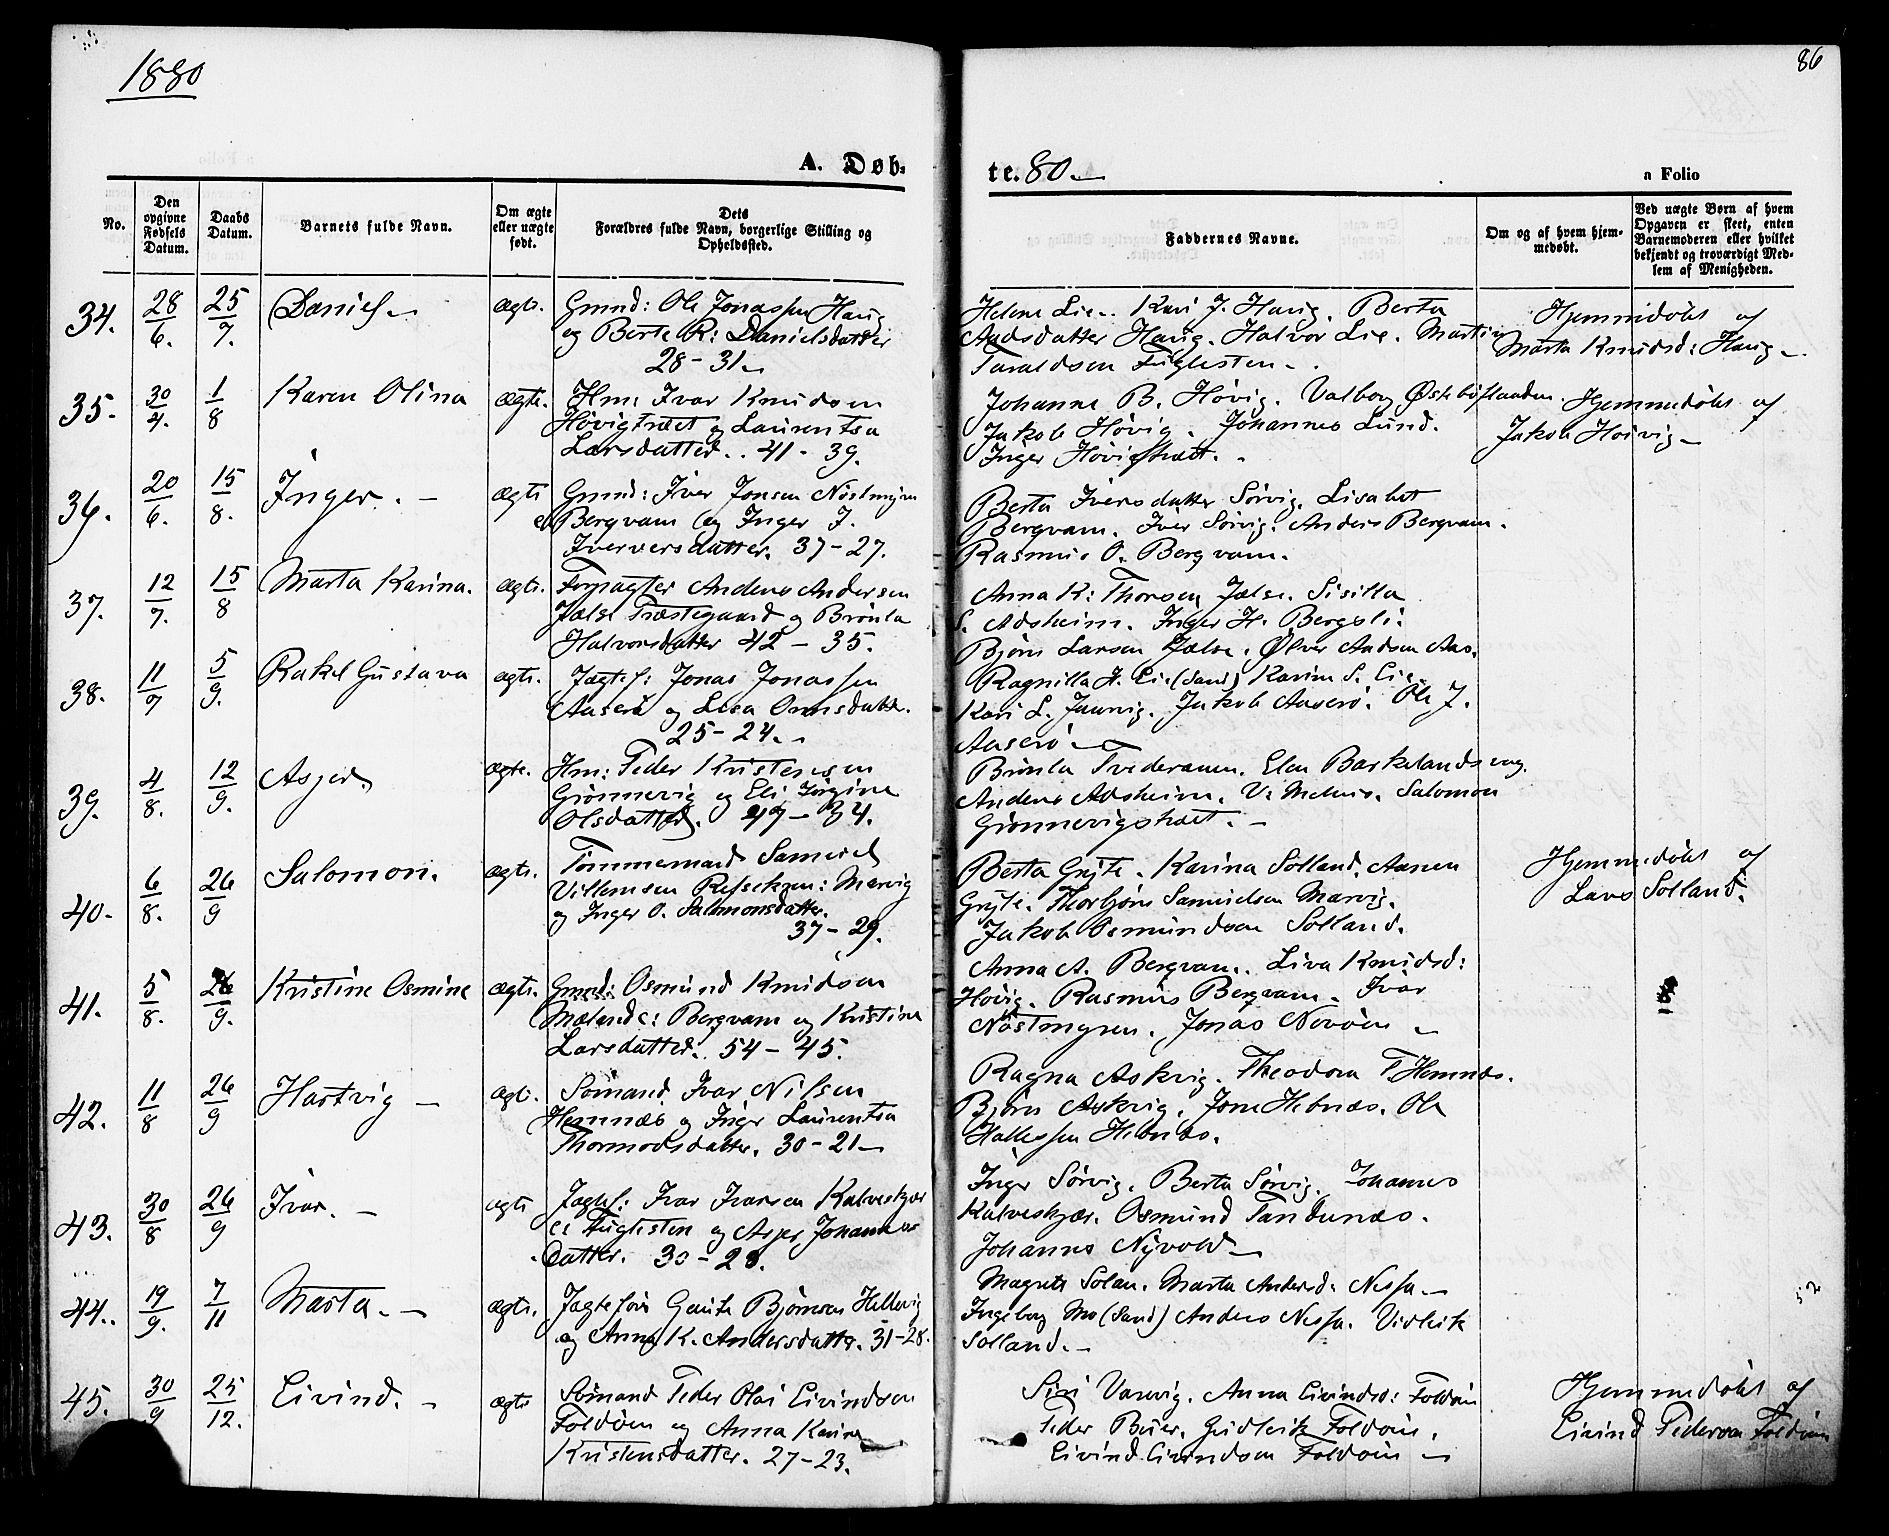 1880
86
A. Døb-
te. 80.
a Folio
No.
Den opgivne Fødsels Datum.
Daabs Datum.
Barnets fulde Navn.
Om ægte eller uægte født.
Dets Forældres fulde Navn, borgerlige Stilling og Opholdssted.
Faddernes Navne.
Om og af hvem hjemmedøbt.
Ved uægte Børn af hvem Opgaven er skeet, enten Barnemoderen eller hvilket bekjendt og troværdigt Medlem af Menigheden.
34. 28/6. 25/7. Daniel ægte. Gmnd: Ole Jonassen Haug
og Berte K: Danielsdatter
28-31
Helene Lie. Kari J. Haug. Berta
Aadsdatter Haug. Halvor Lie. Martin
Taraldsen Fuglesten.
Hjemmedøbt af
Marta Knudsd: Haug
35. 30/4. 1/8 Karen Olina ægte. Hm: Ivar Knudsen
Høvigtræet og Laurentsa
Larsdatter. 41-39.
Johanne B. Høvig. Valborg
Jakob Høvig. Johannes Lund.
Inger Høvigtræet.
Hjemmedøbt af
Jakob Høivig
36. 20/6. 15/8. Inger. ægte Gmnd: Iver Jonsen Nöstmyren
Bergvam og Inger J.
Iverversdatter. 37-27.
Berta Iversdatter Sørvig. Lisabet
Bergvam. Iver Sørvig. Anders Bergvam.
Rasmus O. Bergvam.
37. 12/7. 15/8 Marta Karina. ægte. Forpagter Anders Andersen
Jælse Præstegaard og Brönla
Halvorsdatter 42-35.
Anna K: Thorsen Jælse. Sisilla
S. Adsheim. Inger H. Bergsli.
Björn Larsen Jælse. Ölver Aadsen Aas.
38. 11/7 5/9. Rakel Gustava ægte. Jagtef: Jonas Jonassen
Aaserö og Lisa Omsdatter.
25-24.
Ragnilla H. Lie (Sand) Karine S. Lie
Kari L. Jauvig. Jakob Aaserö. Ole J.
Aaserö
39. 4/8. 12/9. Asger ægte. Hm: Peder Kristensen
Grönnevig og Eli Jörgine
Olsdatter. 49-34.
Brönla Tvederaaen. Elen Barkelandsvag.
Anders Adsheim. V. Melhus. Salomon
Grönnevigstræet.
40. 6/8. 26/9 Salomon. ægte. Tömmermand Samuel
Villemsen Marvig
og Inger O. Salomonsdatter.
37-29.
Berta Gryte. Karina Solland. Aanen
Gryte. Thorbjörn Samuelsen Marvig.
Jakob Osmundsen Solland.
Hjemmedøbt af
Lars Solland.
41. 5/8. 26/9. Kristine Osmine ægte. Gmnd: Osmund Knudsen
Mæland c: Bergvam og Kristine
Larsdatter. 54-45.
Anna A. Bergvam. Liva Knudsd:
Høvig. Rasmus Bergvam. Ivar
Nöstmyren. Jonas Nevöen
42. 11/8 26/9 Hartvig ægte. Sömand Ivar Nilsen
Hemnæs og Inger Laurentsa
Thormodsdatter. 30-21
Ragna Askvig. Theodora T Hemnæs.
Björn Askvig. Jone Hebnæs. Ole
Hallessen Hebnæs.
43. 30/8 26/9 Ivar. ægte Jagtef: Ivar Ivarsen Kalveskjær
c: Fuglesten og Asger Johannes
datter. 30-28.
Inger Sørvig. Berta Sørvig. Johannes
Kalveskjær. Osmund Tandunæs.
Johannes Nyvold
44. 19/9. 7/11 Marta. ægte. Jagtefør Gaute Björnsen Hellevig
og Anna K. Andersdatter. 31-28.
Magrete Solan. Marta Andersd: Nessa
Ingeborg Mo (Sand) Anders Nessa. Vidleik
Solland.
45. 30/9 25/12. Eivind. ægte Sömand Peder Olai Eivindsen
Foldöen og Anna Karina
Kristensdatter. 27-23.
Siri Vanvig. Anna Eivindsd: Foldöen
Peder Bøer. Gudleik Foldöen.
Eivind Eivindsen Foldöen
Hjemmedøbt af
Eivind Pedersen Foldöen